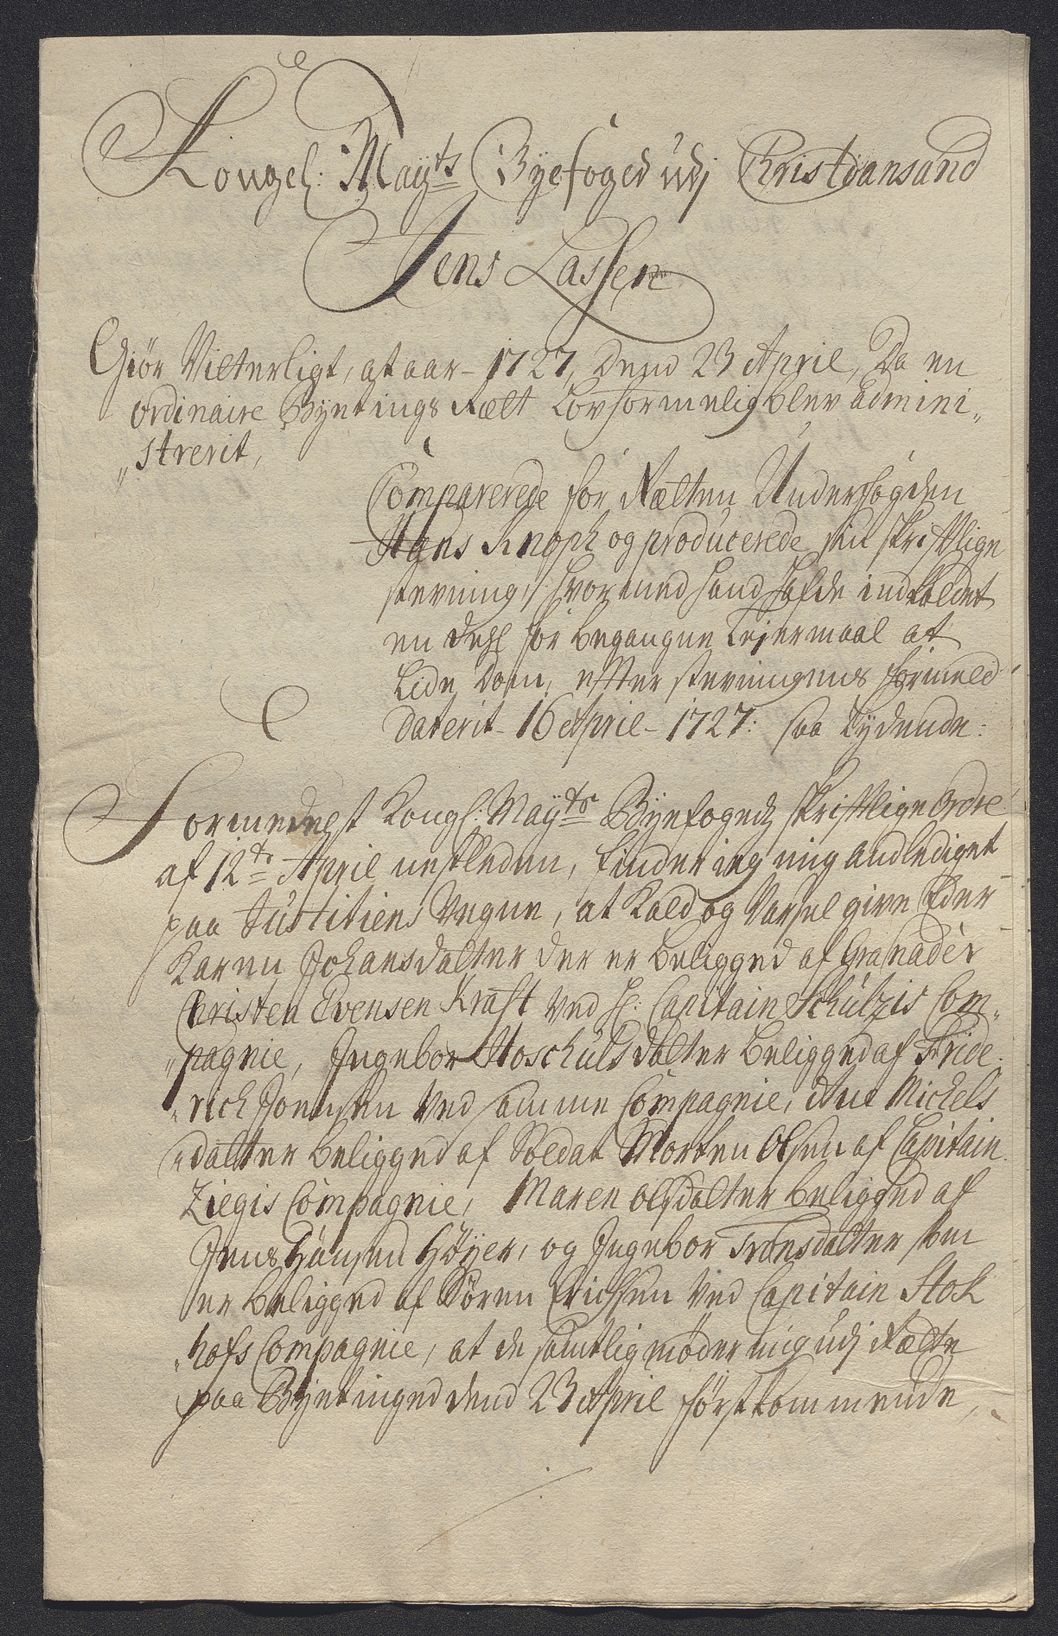 Kongel: Mayts Byefoged udj Christiansand
Jens Lassen
Giør Vitterligt, at aar 1727, Dend 23 April, Da en
ordinaire Byetings Rætt Lovformelig blev admini„
„strerit,
Comparerede for Rætten Underfogden
Hans Knoph og producerede sin skrifftlige
stevning, hvormed hand hafde indkaldet
en deel for begangne Lejermaal at
Lide Dom, effter stevningens formeld
daterit 16 April 1727: saa Lydende:
Formedelst Kongl: Mayts Byefogeds skrifftlige Ordre
af 12te April nestleden, finder ieg mig andlediget
paa Justitiens Vegne, at Kald og Varsel give Eder
Karen Johansdatter der er beligged af Granadèr
Christen Evensen Krafft ved H: Capitain Schultzis Com„
„pagnie, Ingebor Hoschulsdatter beligged af Fride„
„rich Joensen ved samme Compagnie, Ane Michels
„datter beligged af Soldat Morten Olsen af Capitain
Ziegis Compagnie, Maren Olsdatter beligged af
Jens Hansen Høyer, og Ingebor Tronsdatter som
er beligged af Søren Erichsen ved Capitain Stok
„hofs Compagnie, at de samtlig møder mig udj Rætte
paa Byetinged dend 23 Aprilførstkommende,